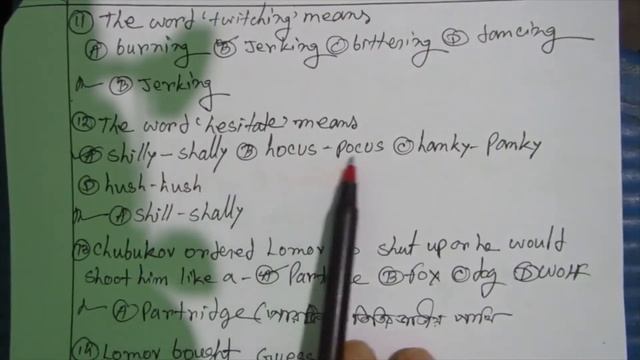 11 The word 'twitching' means
A burning B Jerking C bittering D dancing
B Jerking
12 The word 'hesitate' means
A shilly-shally B hocus-pocus C hanky-Panky
D hush-hush
A shill-shally
13 Chubukov ordered Lomov to shut up or he would
shoot him like a- A B fox C dog D WOLF
A Partridge (
14 Lomov bought Guess